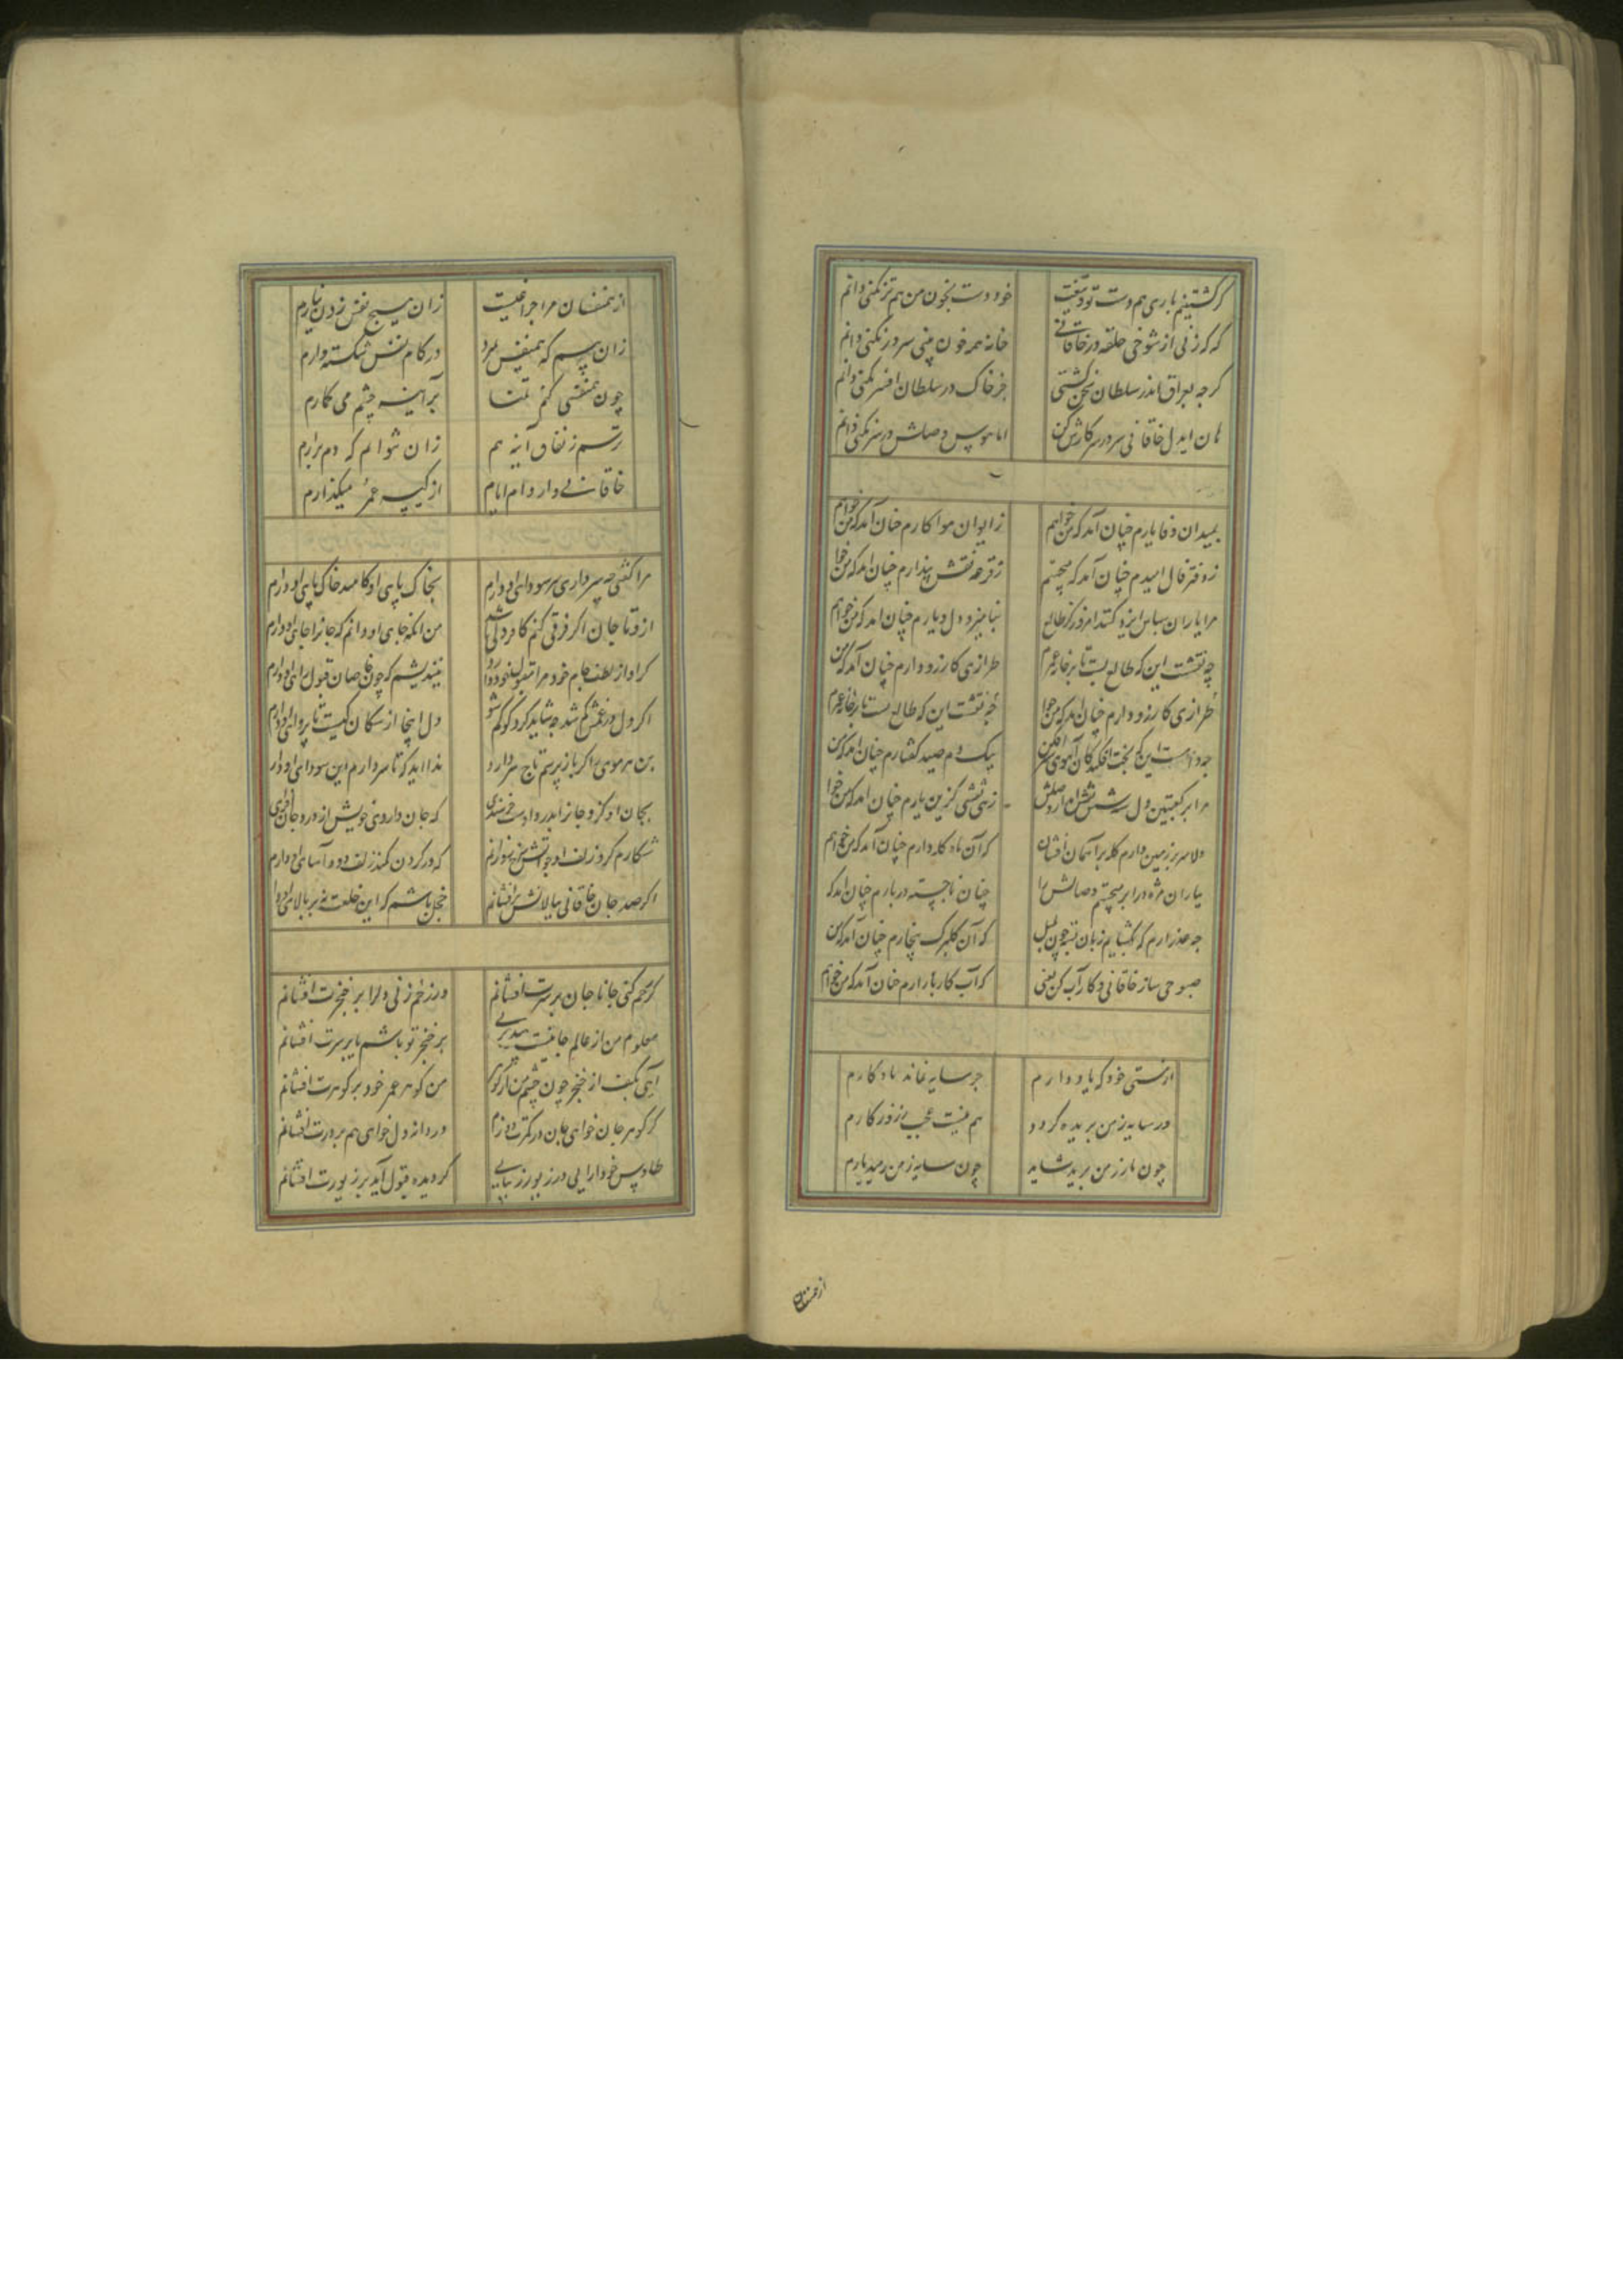 گر کشتنیم باری هم دست تو و تیغت خود دست بخون من هم تر نکنی دانم
که که زنی از شوخی حلقه در خاقانی خانه همه خون بینی سر در نکنی دانم
کر جه بعراق اندر سلطان سخن کشتی جز خاک در سلطان افسر نکنی دانم
هان ایدل خاقانی سر در سر کارش کن اما هوس وصلش در سر نکنی دانم
بمیدان وفا یارم چنان آمد که من خواهم ز ایوان هوا کارم چنان آمد که من خواهم
ز دفتر فال امیدم چنان آمد که میجستم ز قرعه نقش پندارم چنان امد که من خوا
مرا یاران سپاس ایزد کنند امروز کز طالع بنامیزد دل و یارم چنان امد که من خواهم
چه نقشت این که طالع بست تا بر جامه عمرم طرازی کارزو دارم چنان آمد که من
طرازی کارزو دارم چنان امد که من خوا چه نقشت این که طالع بست تا بر جامه عمرم
جه دامست این که بخت افکند کان آهوی شیر افکن بیک دم صید کفتارم چنان امد که من
مرا بر کعبتین دل سه شش نقش آمد از وصلش زهی نقشی کزین یارم چنان امد که من خوا
دلا سر بر زمین دارم کله بر آسمان افشان که آن ماه کله دارم چنان آمد که من خواهم
بیاران مژه در ابر میجستم وصالش را چنان ناجسته در بارم چنان امد که
جه عذر ارم که بکشایم زبان بسته چون بلبل که آن کلبرک بیخارم چنان آمد که من
صبوحی ساز خاقانی و کار آب کن یعنی که آب کار بازارم چنان آمد که من خواهم
از هستی خود که یاد دارم جز سایه نماند یادکارم
ور سایه ز من بریده کردد هم نیست عجب ز روزکارم
چون یار ز من برید شاید چون سایه ز من رمید یارم
از همنفسان
از همنفسان مرا جراغیست زان هیچ نفس زدن نیارم
زان پیم که همنفس بمرد در کام نفس شکسته دارم
چون همنفسی کنم تمنا بر آینه چشم می کمارم
ترسم ز نفاق آینه هم زان نتوانم که دم برارم
خاقانی وار وام ایام از کیسه عمر میکذارم
مرا کفتی چه سر داری سر سودای او دارم بخاک پای او کامید خاک پای او دارم
ازو تا جان اگر فرقی کنم کافر دلی باشد من انکه جای او دانم که جانرا جای او دارم
گر او از لطف عام خود مرا مقبول خود دارد نیندیشم که چون خاصان قبول رای او دارم
اکر دل در غمش کم شد چه شاید کرد کو کم شو دل اینجا از سکان کیست تا پروای او دارم
بن هر موی را گر باز پرسم تاج سر دارد ندا اید که تا سر دارم این سودای او دار
بجان او کزو جانرا بدرد اوست خرسندی که جان داروی خویش از درد جان افزای
شکارم کرد زلف او چو آتش سرخ رو زانم که در گردن کمند زلف دود آسای او دارم
اکر صد جان خاقانی ببالایش بر افشانم خجل باشم که این خلعت نه بر بالای او دا
کر رحم کنی جانا جان بر سرت افشانم ور زخم زنی دل را بر خنجرت افشانم
معلوم من از عالم جانیست چه میفرمایی بر خنجر تو پاشم یا بر سرت افشانم
آبی بکف از خنجر چون چشم من از گوهر من کوهر عمر خود بر کوهرت افشانم
کر کوهر جان خواهی هم در کمرت دوزم ور دانه دل خواهی هم بر درت افشانم
طاوس خود آرایی در زیور زیبایی کر دیده قبول آید بر زیورت افشانم